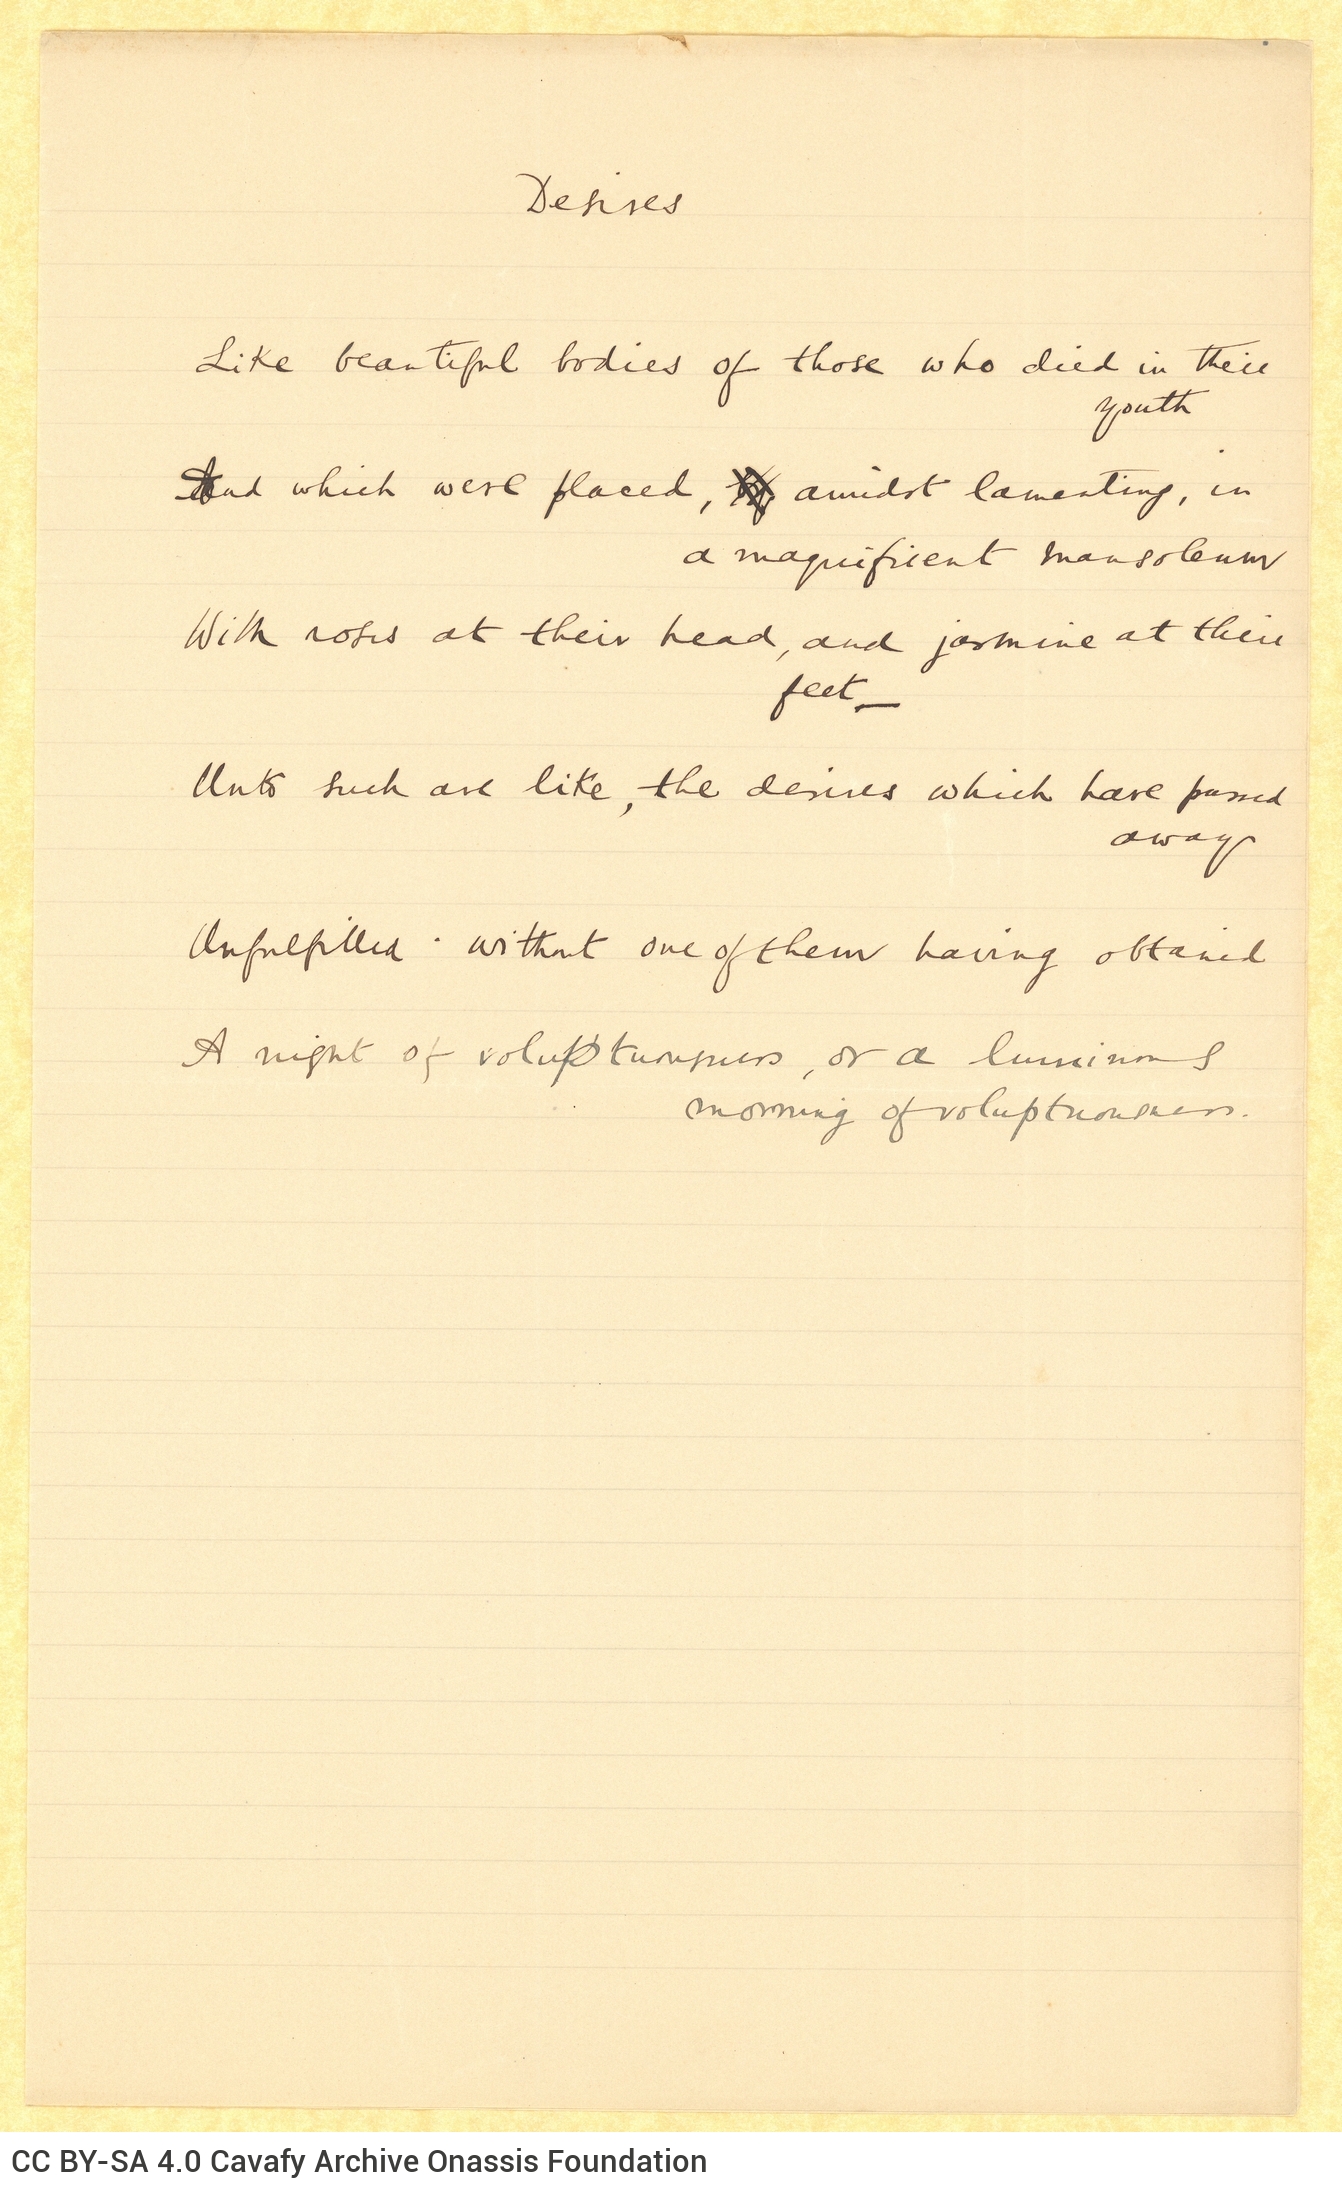 Desires
Like beautiful bodies of those who died in their
youth
And which were placed, amidst lamenting, in
a magnificent mausoleum
With roses at their head, and jasmine at their
feet_
Unto such are like, the desires which have passed
away
Unfulfilled · without one of them having obtained
A night of voluptuousness, or a luminous
morning of voluptuousness.
CC BY-SA 4.0 Cavafy Archive Onassis Foundation